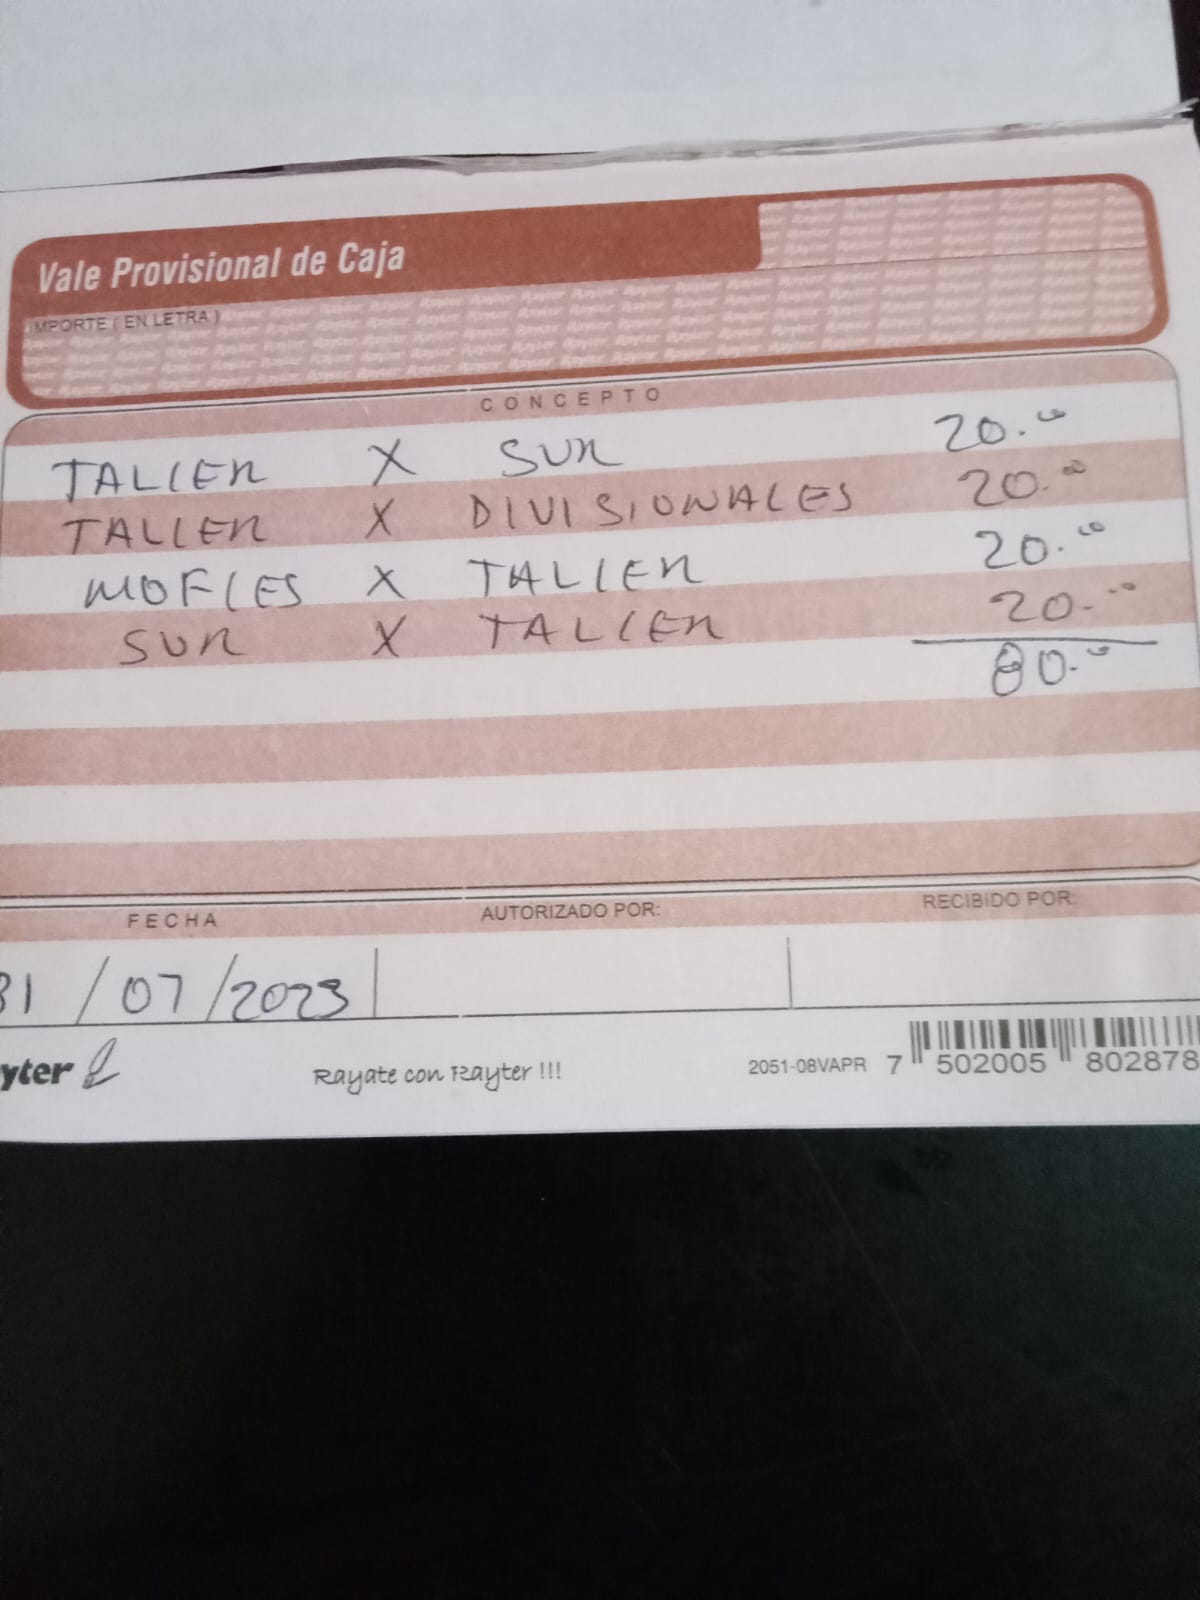 Vale Provisional de Caja
IMPORTE ( EN LETRA )
CONCEPTO
TALLER X SUR 20.00
TALLER X DIVISIONALES 20.00
MOFLES X TALLER 20.00
SUR X TALLER 20.00
80.00
FECHA AUTORIZADO POR: RECIBIDO POR:
31 / 07 / 2023
yter Rayate con Rayter !!! 2051-08VAPR 7 502005 802878